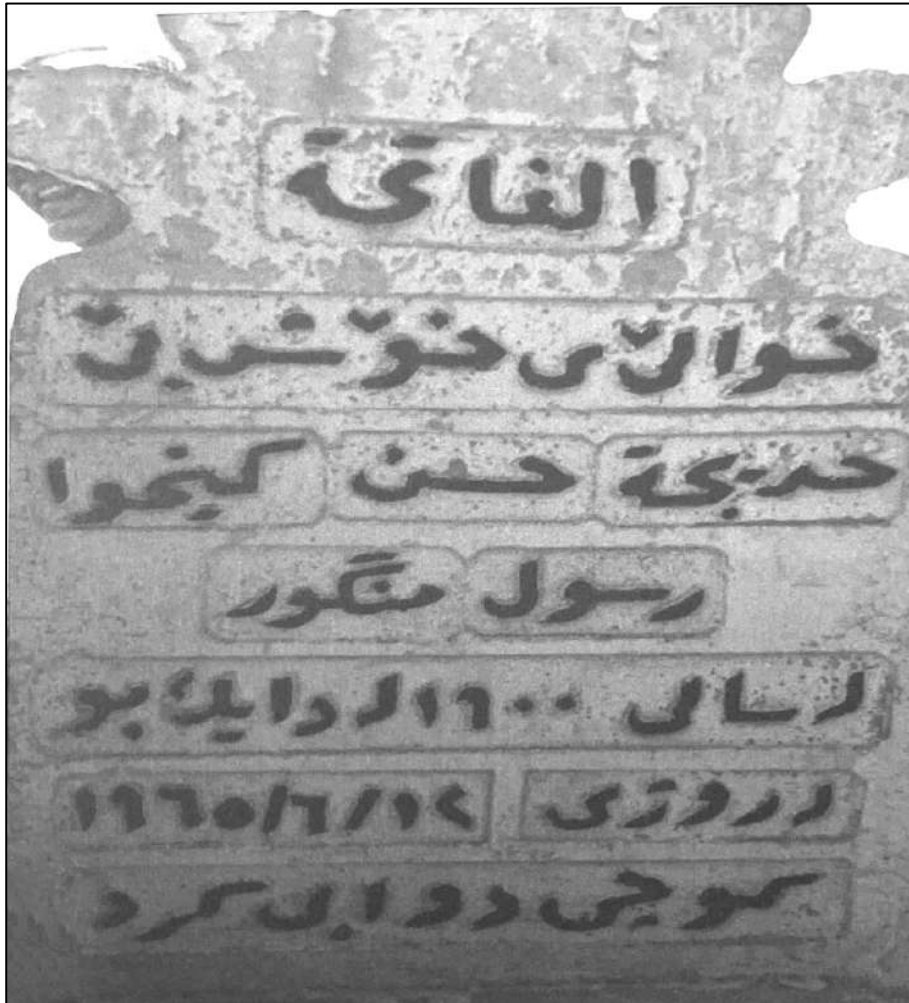 الفاتحة
خوالێی خۆش بێ
خدیجة حسن کیخوا
رسول منگور
لسالی ١٩٠٠ لدایک بو
لروژی ١٩٦٥/٦/١٢
کوچی دوایی کرد